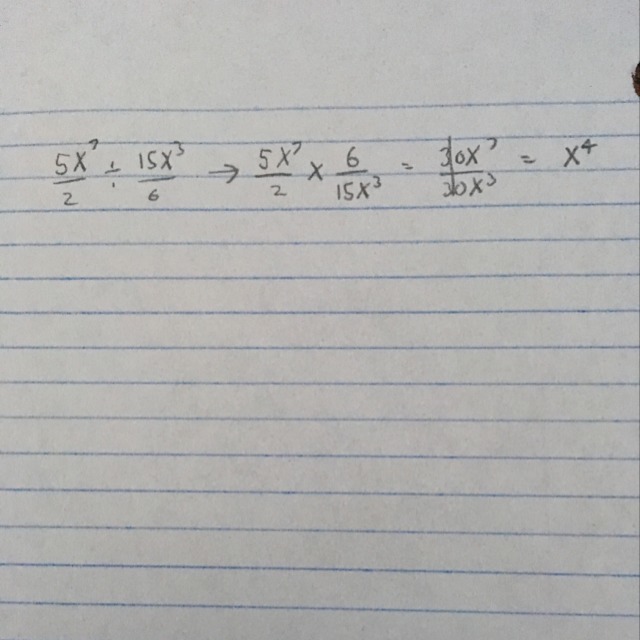 5x⁷/2 ÷ 15x³/6 → 5x⁷/2 x 6/15x³ = 30x⁷/30x³ = x⁴